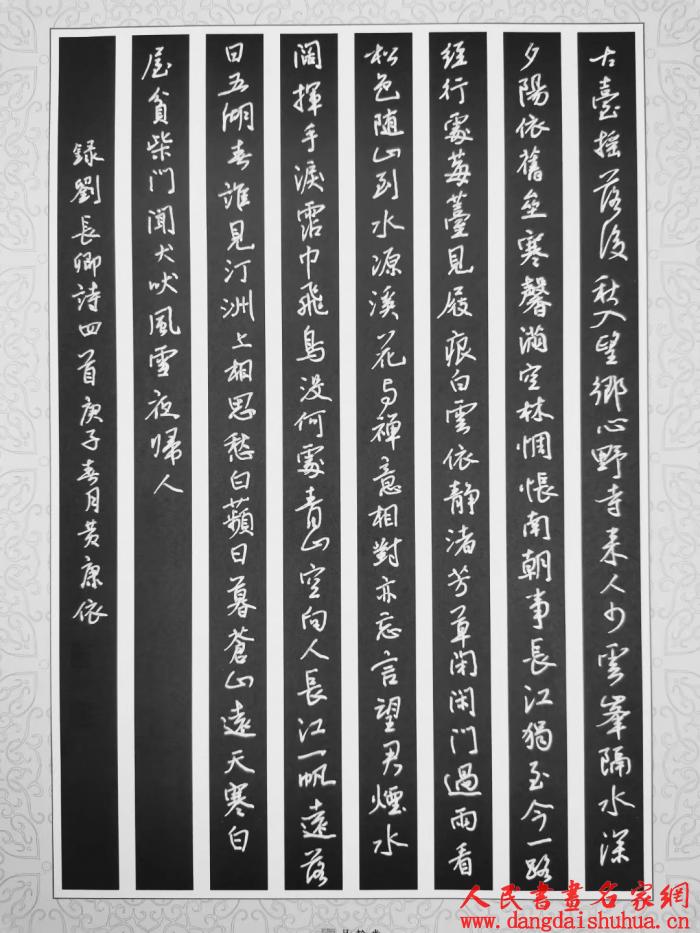 古臺搖落後秋入望鄉心野寺来人少雲峯隔水深
夕陽依舊壘寒馨滿空林惆悵南朝事長江獨至今一路
經行處莓薹見屐痕白雲依静渚芳草閑閑门過雨看
松色随山到水源溪花与禪意相對亦忘言望君煙水
闊揮手淚霑巾飛鳥没何處青山空向人長江一帆遠落
日五湖春誰見汀洲上相思愁白蘋日暮蒼山遠天寒白
屋貧柴门聞犬吠風雪夜歸人
録劉長卿詩四首庚子春月黄康依
人民書畫名家網
www.dangdaishuhua.cn